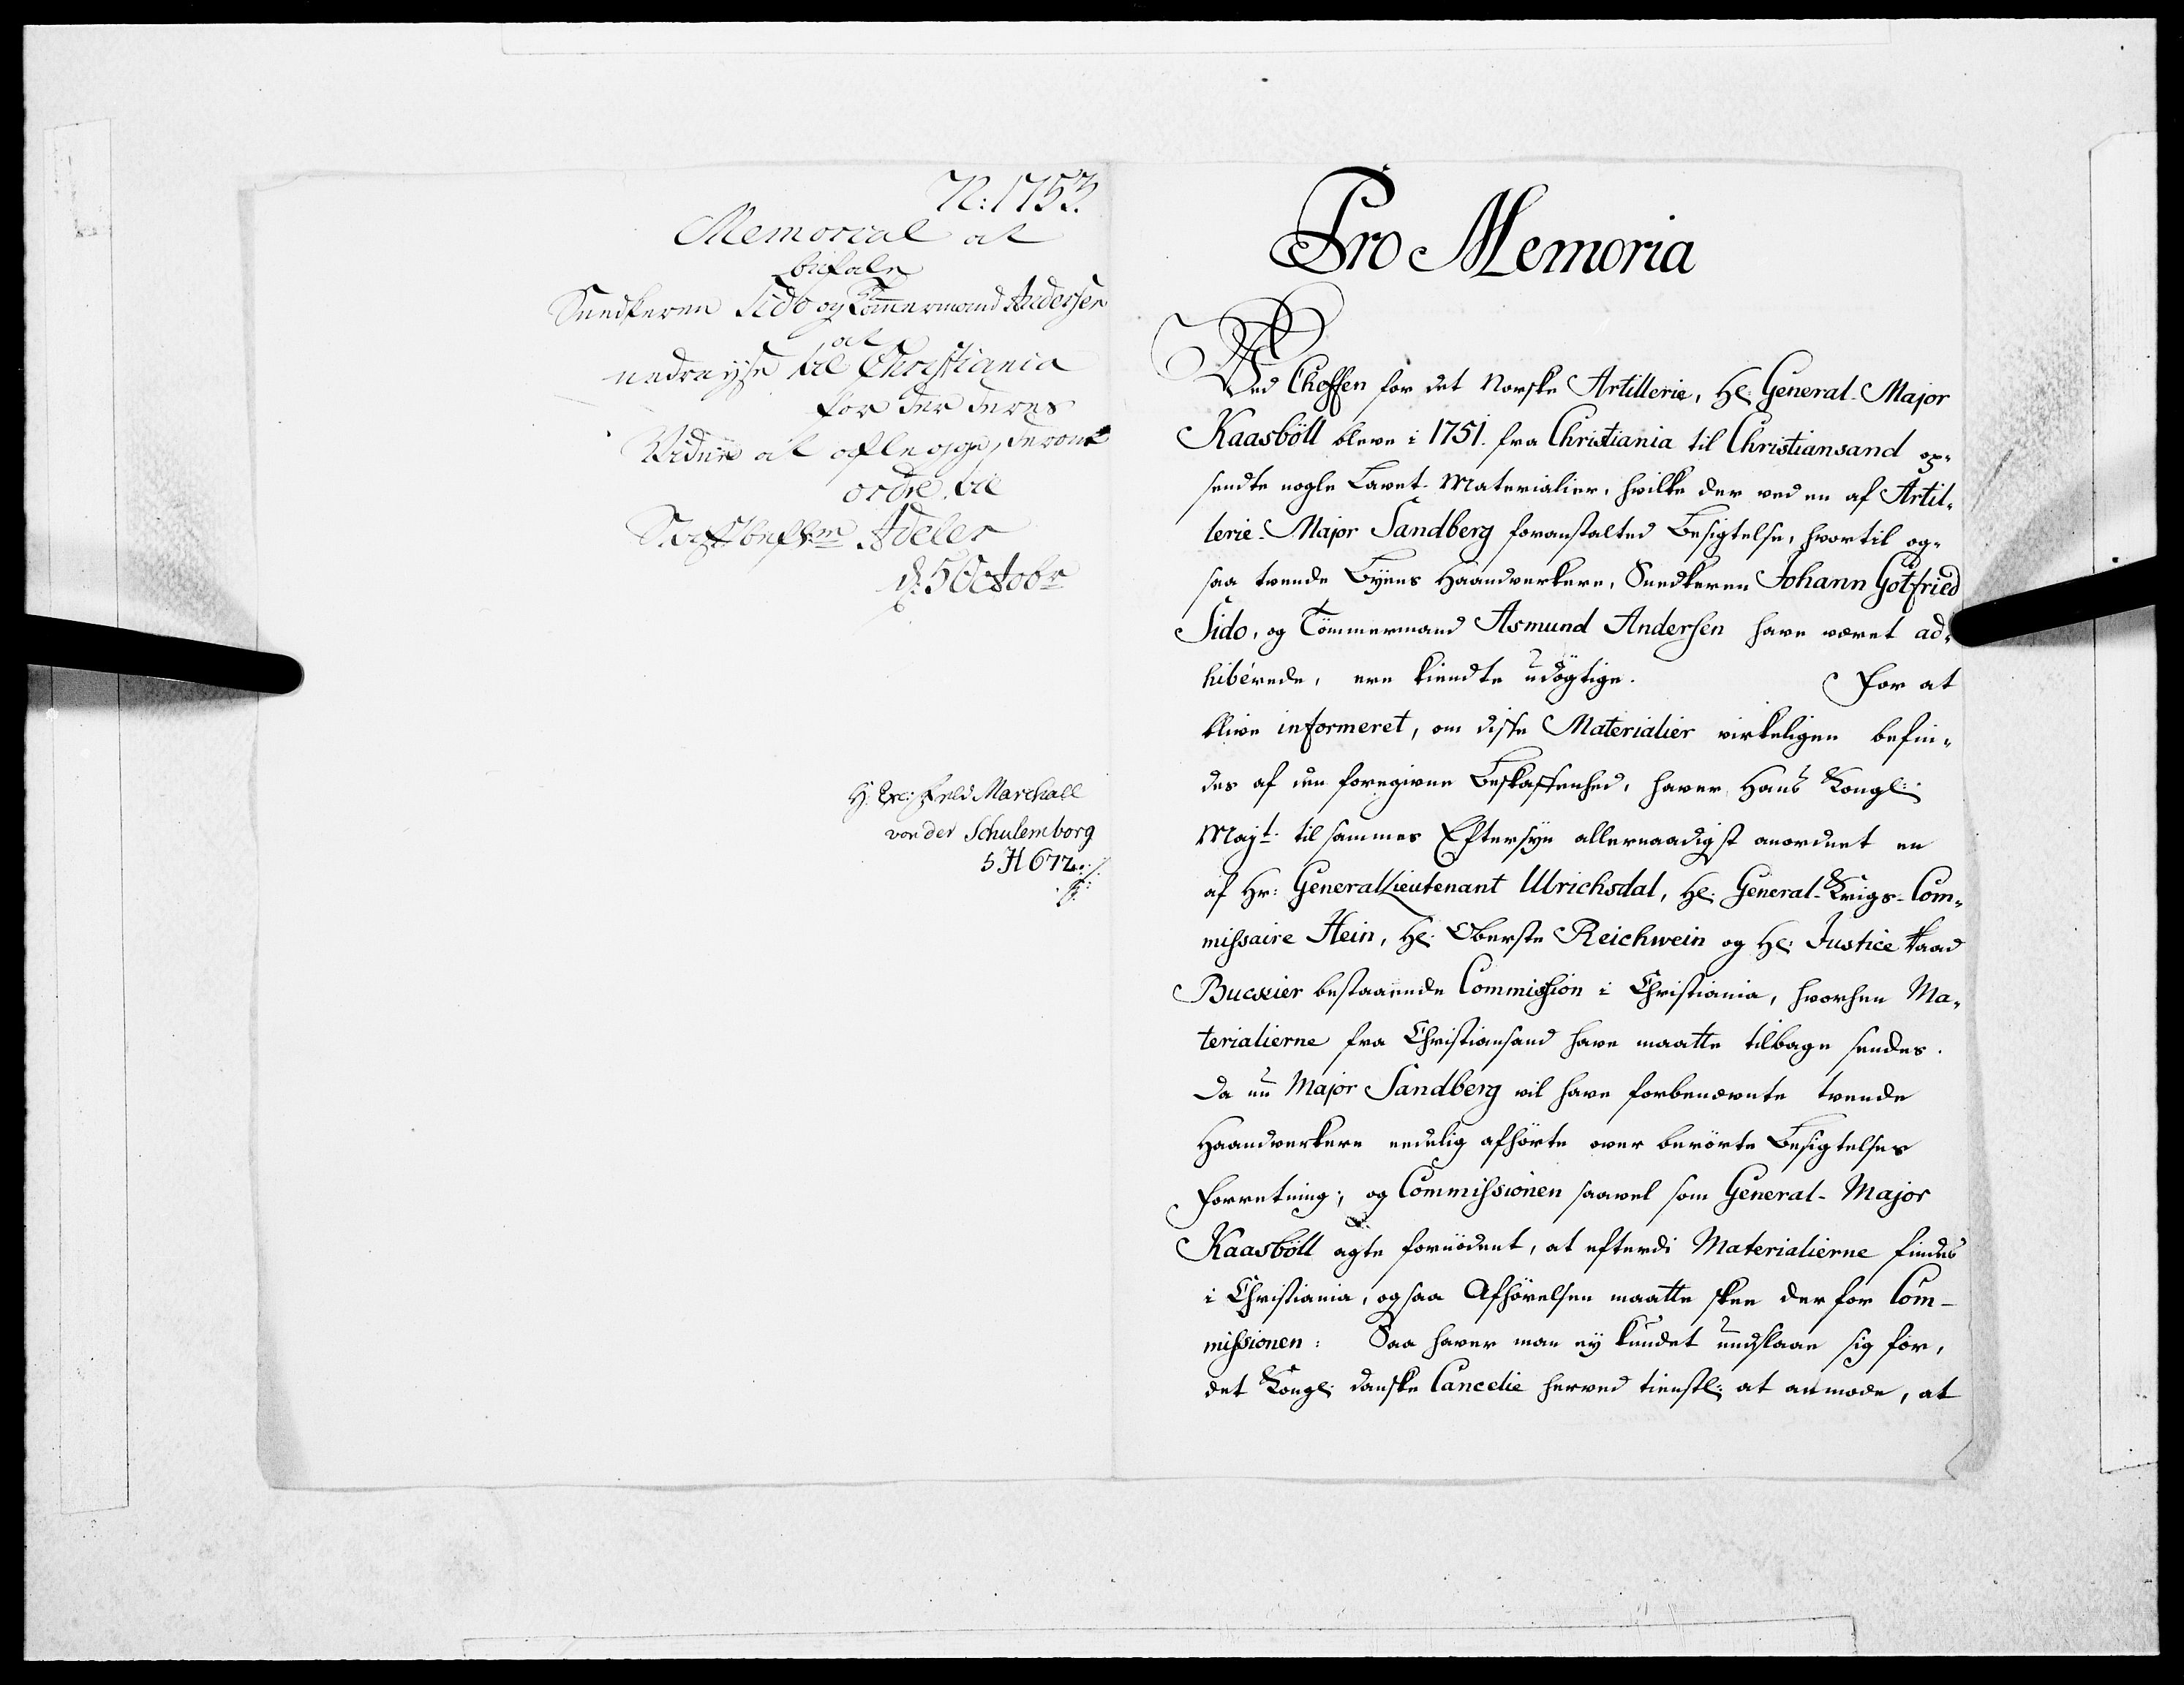 N: 1753.
Memorial at
befale
Snedkeren Sido og Tømmermand Andersen
at
nedreyse til Christiania
for der deres
Vidne at aflegge, derom
ordre til
Stiftbefhm Adeler
d: 5 Octobr
H: Exc: Feld Marchall
von der Schulemborg
5 H 672.
Pro Memoria
Ved Cheffen for det Norske Artillerie, Hr: General-Major
Kaasböll bleve i 1751. fra Christiania til Christiansand op-
sendte nogle Lavet-Materialier, hvilke der ved en af Artil-
lerie-Major Sandberg foranstalted Besigtelse, hvortil og-
saa tvende Byens Haandverkere, Snedkeren Johann Gotfried
Sido, og Tömmermand Asmund Andersen have været ad-
hiberede, ere kiendte udögtige. For at
blive informeret, om disse Materialier virkeligen befin-
des af den foregivne Beskaffenhed, haver Hans Kongl:
Majt. til sammes Eftersyn allernaadigst anordnet en
af Hr: General Lieutenant Ulrichsdal, Hr: General-Krigs-Com-
missaire Hein, Hr: Oberste Reichwein og Hr: Justice Raad
Bucsier bestaaende Commission i Christiania, hvorhen Ma-
terialierne fra Christiansand have maatte tilbage sendes.
Da nu Major Sandberg vil have forbenævnte tvende
Haandverkere eedelig afhörte over berörte Besigtelses
Forretning; og Commissionen saavel som General-Major
Kaasböll agte fornödent, at efterdi Materialierne findes
i Christiania, ogsaa Afhörelsen maatte skee der for Com-
missionen: Saa haver man ey kundet undslaae sig for,
det Kongl: danske Cancelie herved tienstl: at anmode, at